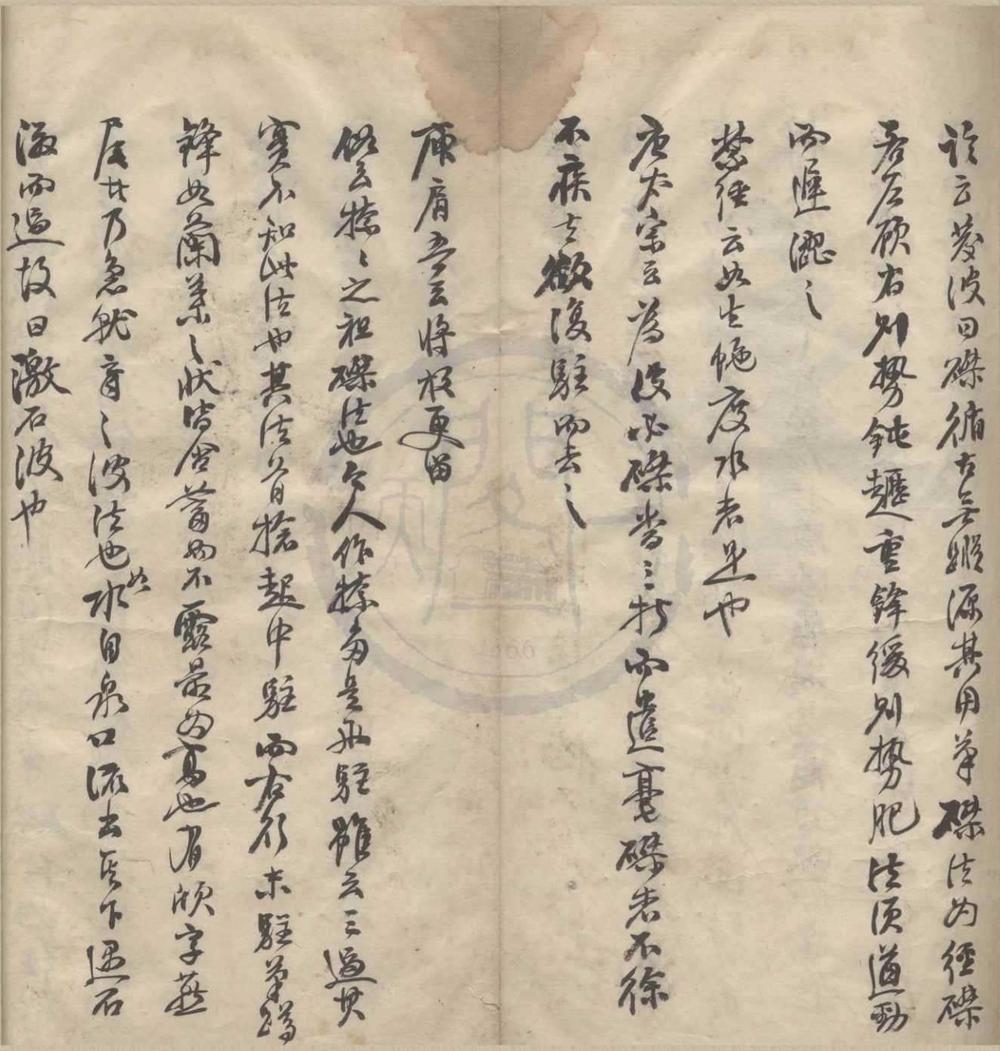 詮云發波曰磔循古無蹤源其用筆磔法為徑磔
若左顧右則勢鈍趯重鋒緩則勢肥法須遒勁
而遲澀之
禁徑云如生蛇度水者是也
唐太宗云為波必磔當三折而遣毫磔者不徐
不疾去欲復駐而去之
庾肩吾云將放更留
俗云捺之祖磔法也今人作捺多是再駐雖云三過其
實不知此法也其法首搶起中駐而右行末駐筆蹲
鋒如蘭葉之狀皆含蓄而不露最為高也有欣字燕
尾其乃急就章之波法也如水自泉口流出其下遇石
激而過故曰激石波也